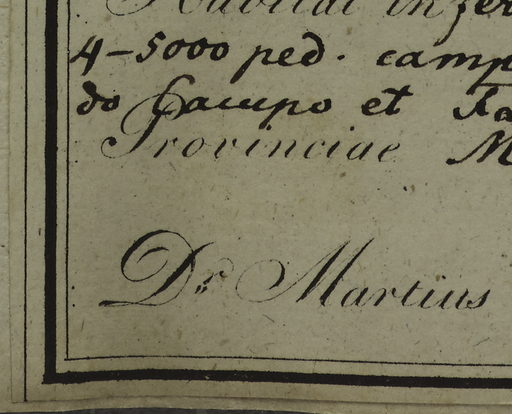 Habitat in fer
4-5000 ped. camp
do Campo et
Provinciae M
Dr. Martius